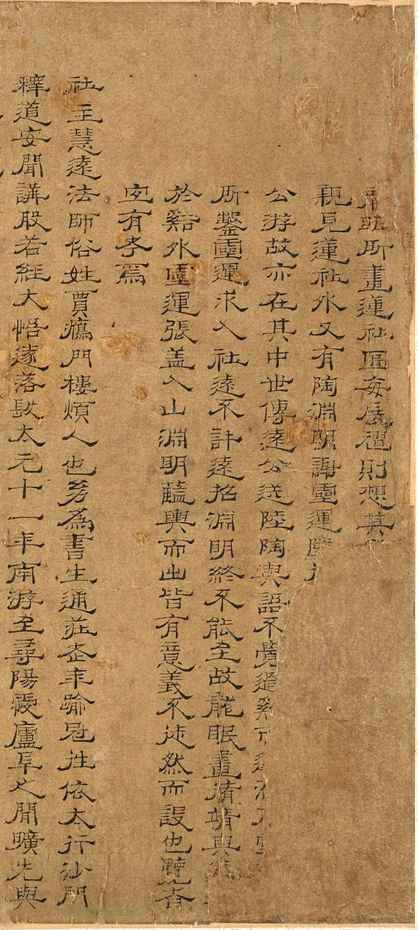 眠所畫蓮社圖 展禮則想其
親見蓮社外又有陶淵明謝靈運陸
公游故亦在其中世傳遠公送陸陶與語不覺過谿
所鑒靈運求入社遠不許遠招淵明終不能至故龍眠畫脩靖與
於谿外靈運張盖入山淵明籃輿而出皆有意義不徒然而設也覽者
宜有考焉
社主慧遠法師俗姓賈鴈門樓煩人也幼為書生通莊老年踰冠往依太行沙門
釋道安聞講般若經大悟遂落髮太元十一年南游至尋陽愛廬阜之閒曠先與